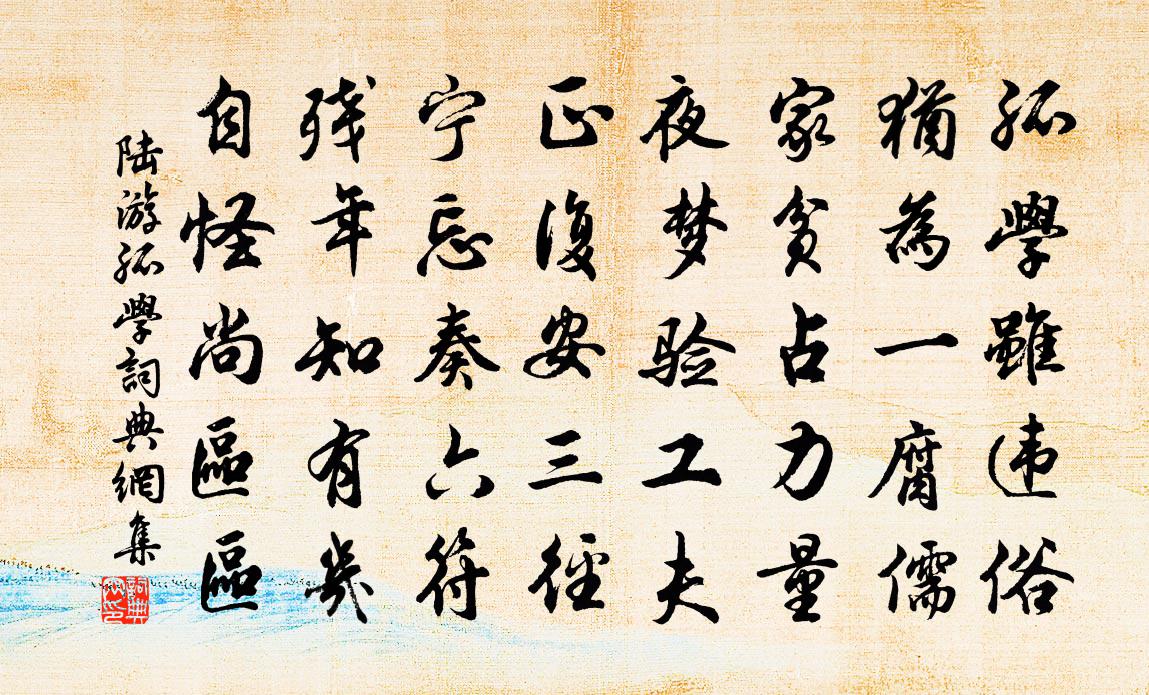 孤學雖违俗
猶為一腐儒
家貧占力量
夜梦验工夫
正復安三徑
宁忘奏六符
残年知有幾
自怪尚區區
陆游孤學詞典網集